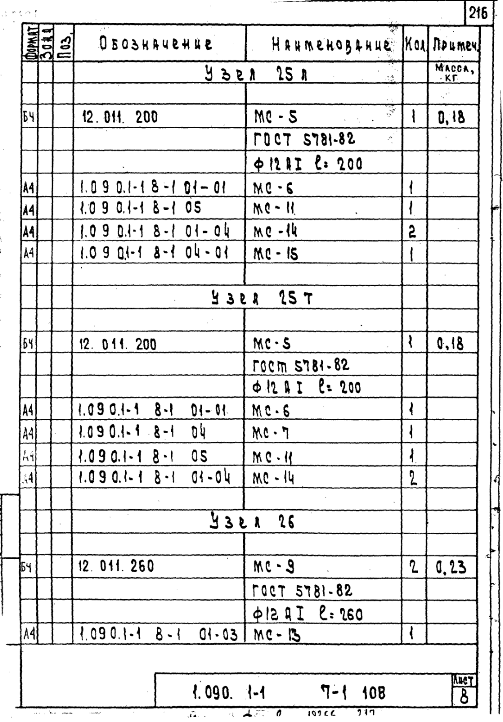 216
Формат Зона Поз. Обозначение Наименование Кол Примеч.
Узел 25л Масса, кг
БЧ 12.011.200 МС-5 1 0,18
ГОСТ 5781-82
ф12АI ℓ=200
А4 1.090.1-1 8-1 01-01 МС-6 1
А4 1.090.1-1 8-1 05 МС-11 1
А4 1.090.1-1 8-1 01-04 МС-14 2
А4 1.090.1-1 8-1 04-01 МС-15 1
Узел 25т
БЧ 12.011.200 МС-5 1 0,18
ГОСТ 5781-82
ф12АI ℓ=200
А4 1.090.1-1 8-1 01-01 МС-6 1
А4 1.090.1-1 8-1 04 МС-7 1
А4 1.090.1-1 8-1 05 МС-11 1
А4 1.090.1-1 8-1 01-04 МС-14 2
Узел 26
БЧ 12.011.260 МС-9 2 0,23
ГОСТ 5781-82
ф12АI ℓ=260
А4 1.090.1-1 8-1 01-03 МС-13 1
1.090.1-1 7-1 108 Лист 8